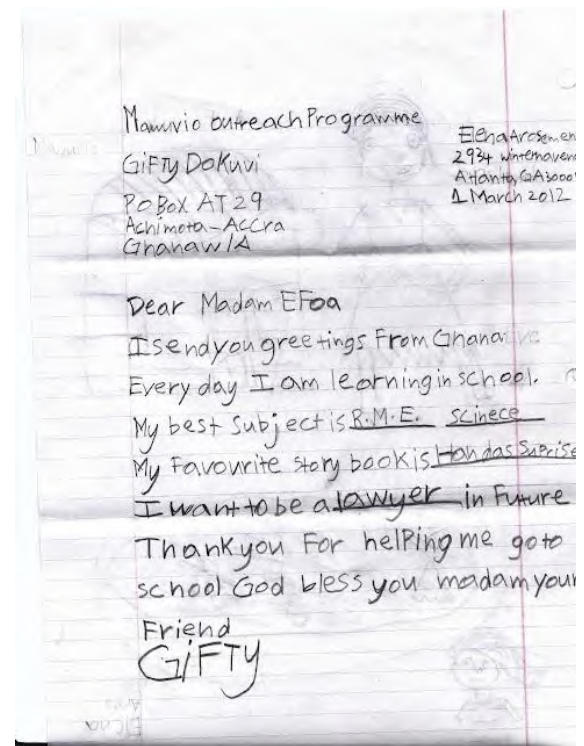 Mamuvio outreach Programme
GiFTy DoKuvi
P.O BOX AT 29
Achimota-Accra
Ghana W/A
2934
Atlanta, GA
1 March 2012
Dear Madam EFoa
I send you greetings From Ghana
Every day I am learning in school.
My best Subject is R.M.E. scinece
My Favourite story book is Handas Suprise
I want to be a lawyer in Future
Thank you For helPing me go to
school God bless you madam your
Friend
GiFTy